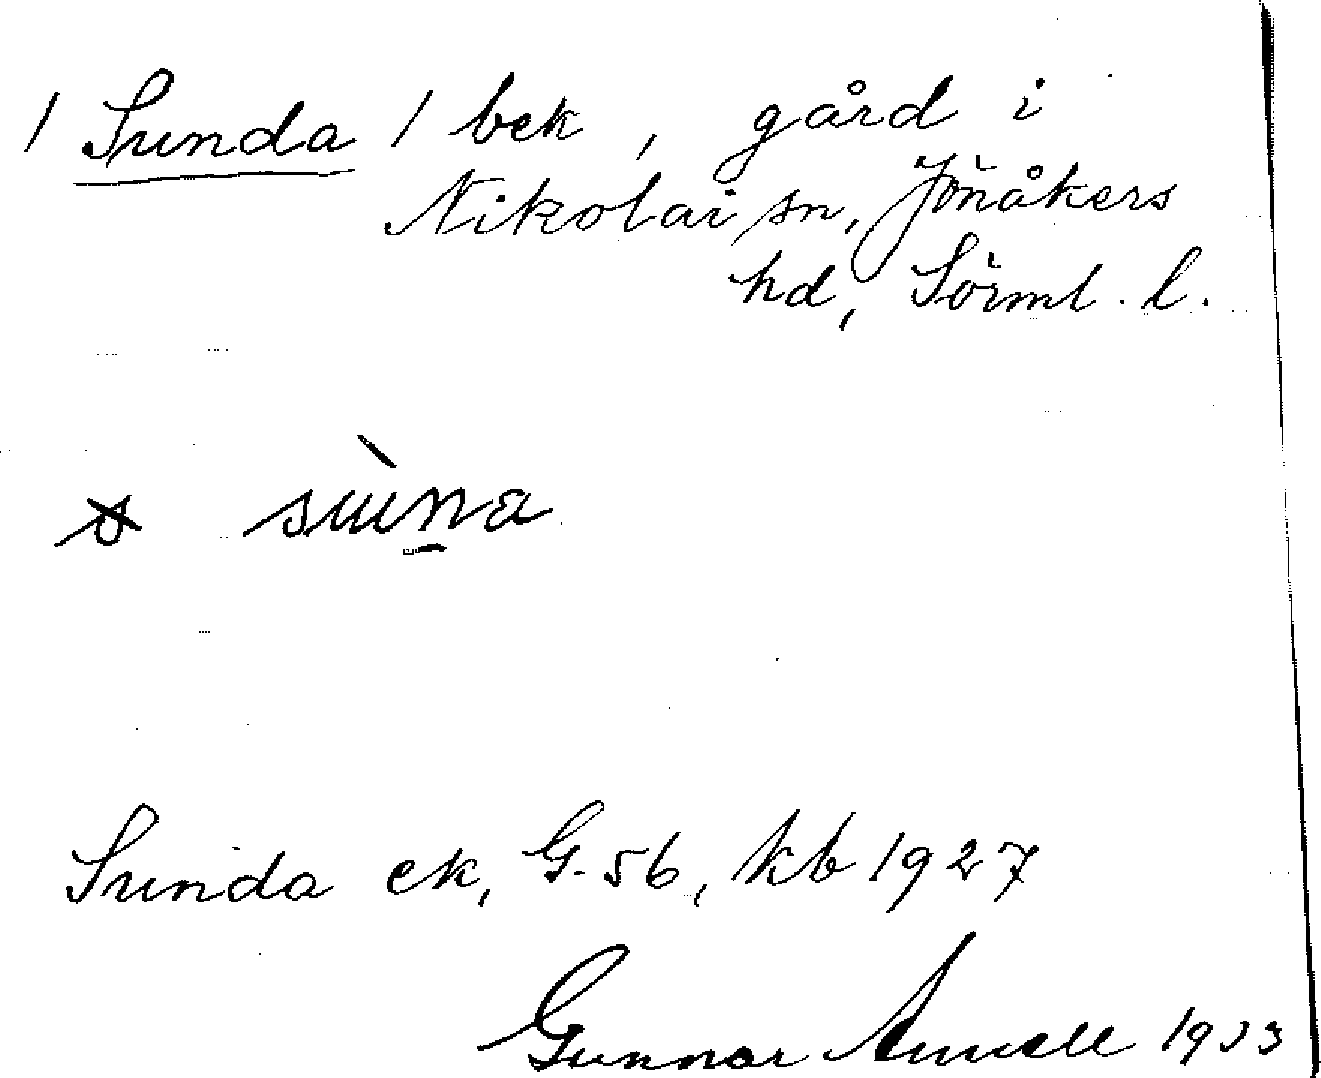 / Sunda / bek, gård i
Nikolai sn, Jönåkers
hd, Sörml. l.
su̇̀na
Sunda ek, G. 56, kb 1927
Gunnar 1933